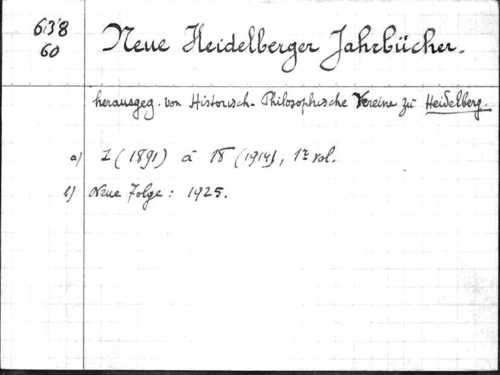 638
60
Neue Heidelberger Jahrbücher.
herausgeg. von Historisch-Philosophische Vereine zu Heidelberg.
a) 1 (1891) à 18 (1914), 1r vol.
b) Neue Folge: 1925.